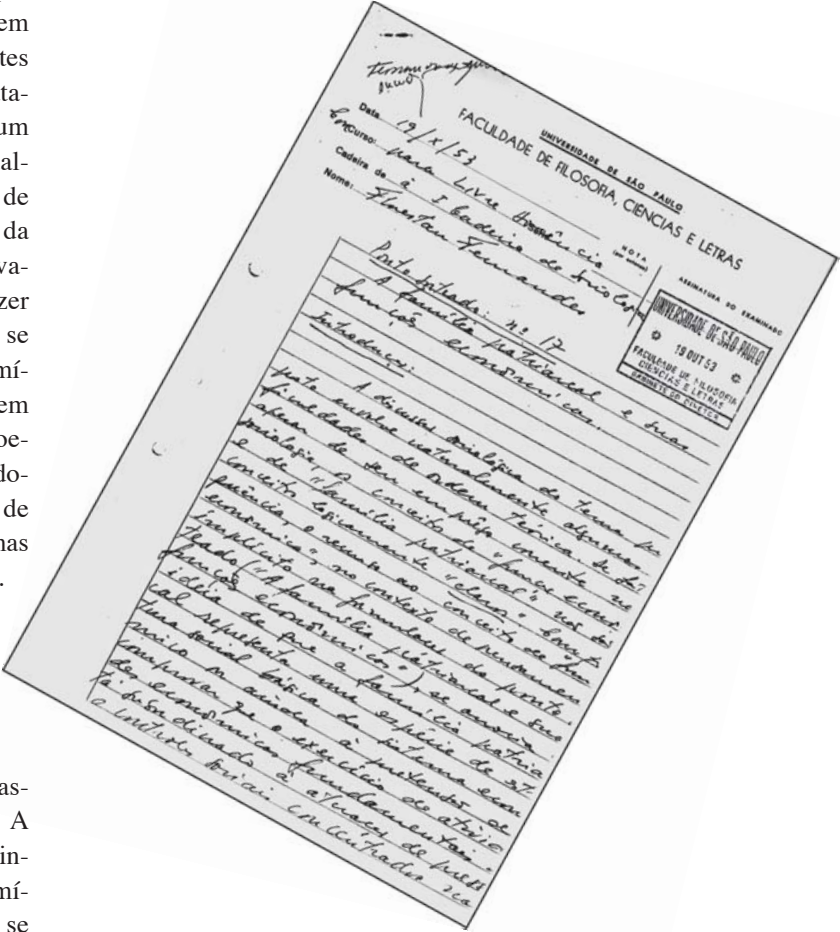 em
tes
ta-
um
al-
de
da
va-
zer
se
mí-
em
oe-
do-
de
nas
.
as-
A
in-
mí-
se
UNIVERSIDADE DE SÃO PAULO
FACULDADE DE FILOSOFIA, CIÊNCIAS E LETRAS
Data 19/X/53
Curso: para Livre Docência
Cadeira de à I Cadeira de Sociologia
Nome: Florestan Fernandes
NOTA
(por extenso)
ASSINATURA DO EXAMINADO
UNIVERSIDADE DE SÃO PAULO
19 OUT 53
FACULDADE DE FILOSOFIA
CIÊNCIAS E LETRAS
GABINETE DO DIRETOR
Ponto sorteado: nº 17
A família patriarcal e suas
funções econômicas.
Introdução:
A discussão sociológica do tema pro
posto envolve naturalmente algumas
dificuldades de ordem teórica.
apesar de seu emprêgo corrente na
sociologia, o conceito de "função econô
e de "família patriarcal" não são
conceitos logicamente "claros".
econômica", no contexto do pensamento
implícito na formulação do ponto.
teado ("A família patriarcal e suas
funções econômicas"), se associa
idéia de que a família patriar
cal representa uma espécie de est
tura social básica do sistema econ
mico ou ainda à pretensão de
comprovar que o exercício de ativida
des econômicas fundamentais
tá subordinado à atuação de
e controles sociais concentrados na